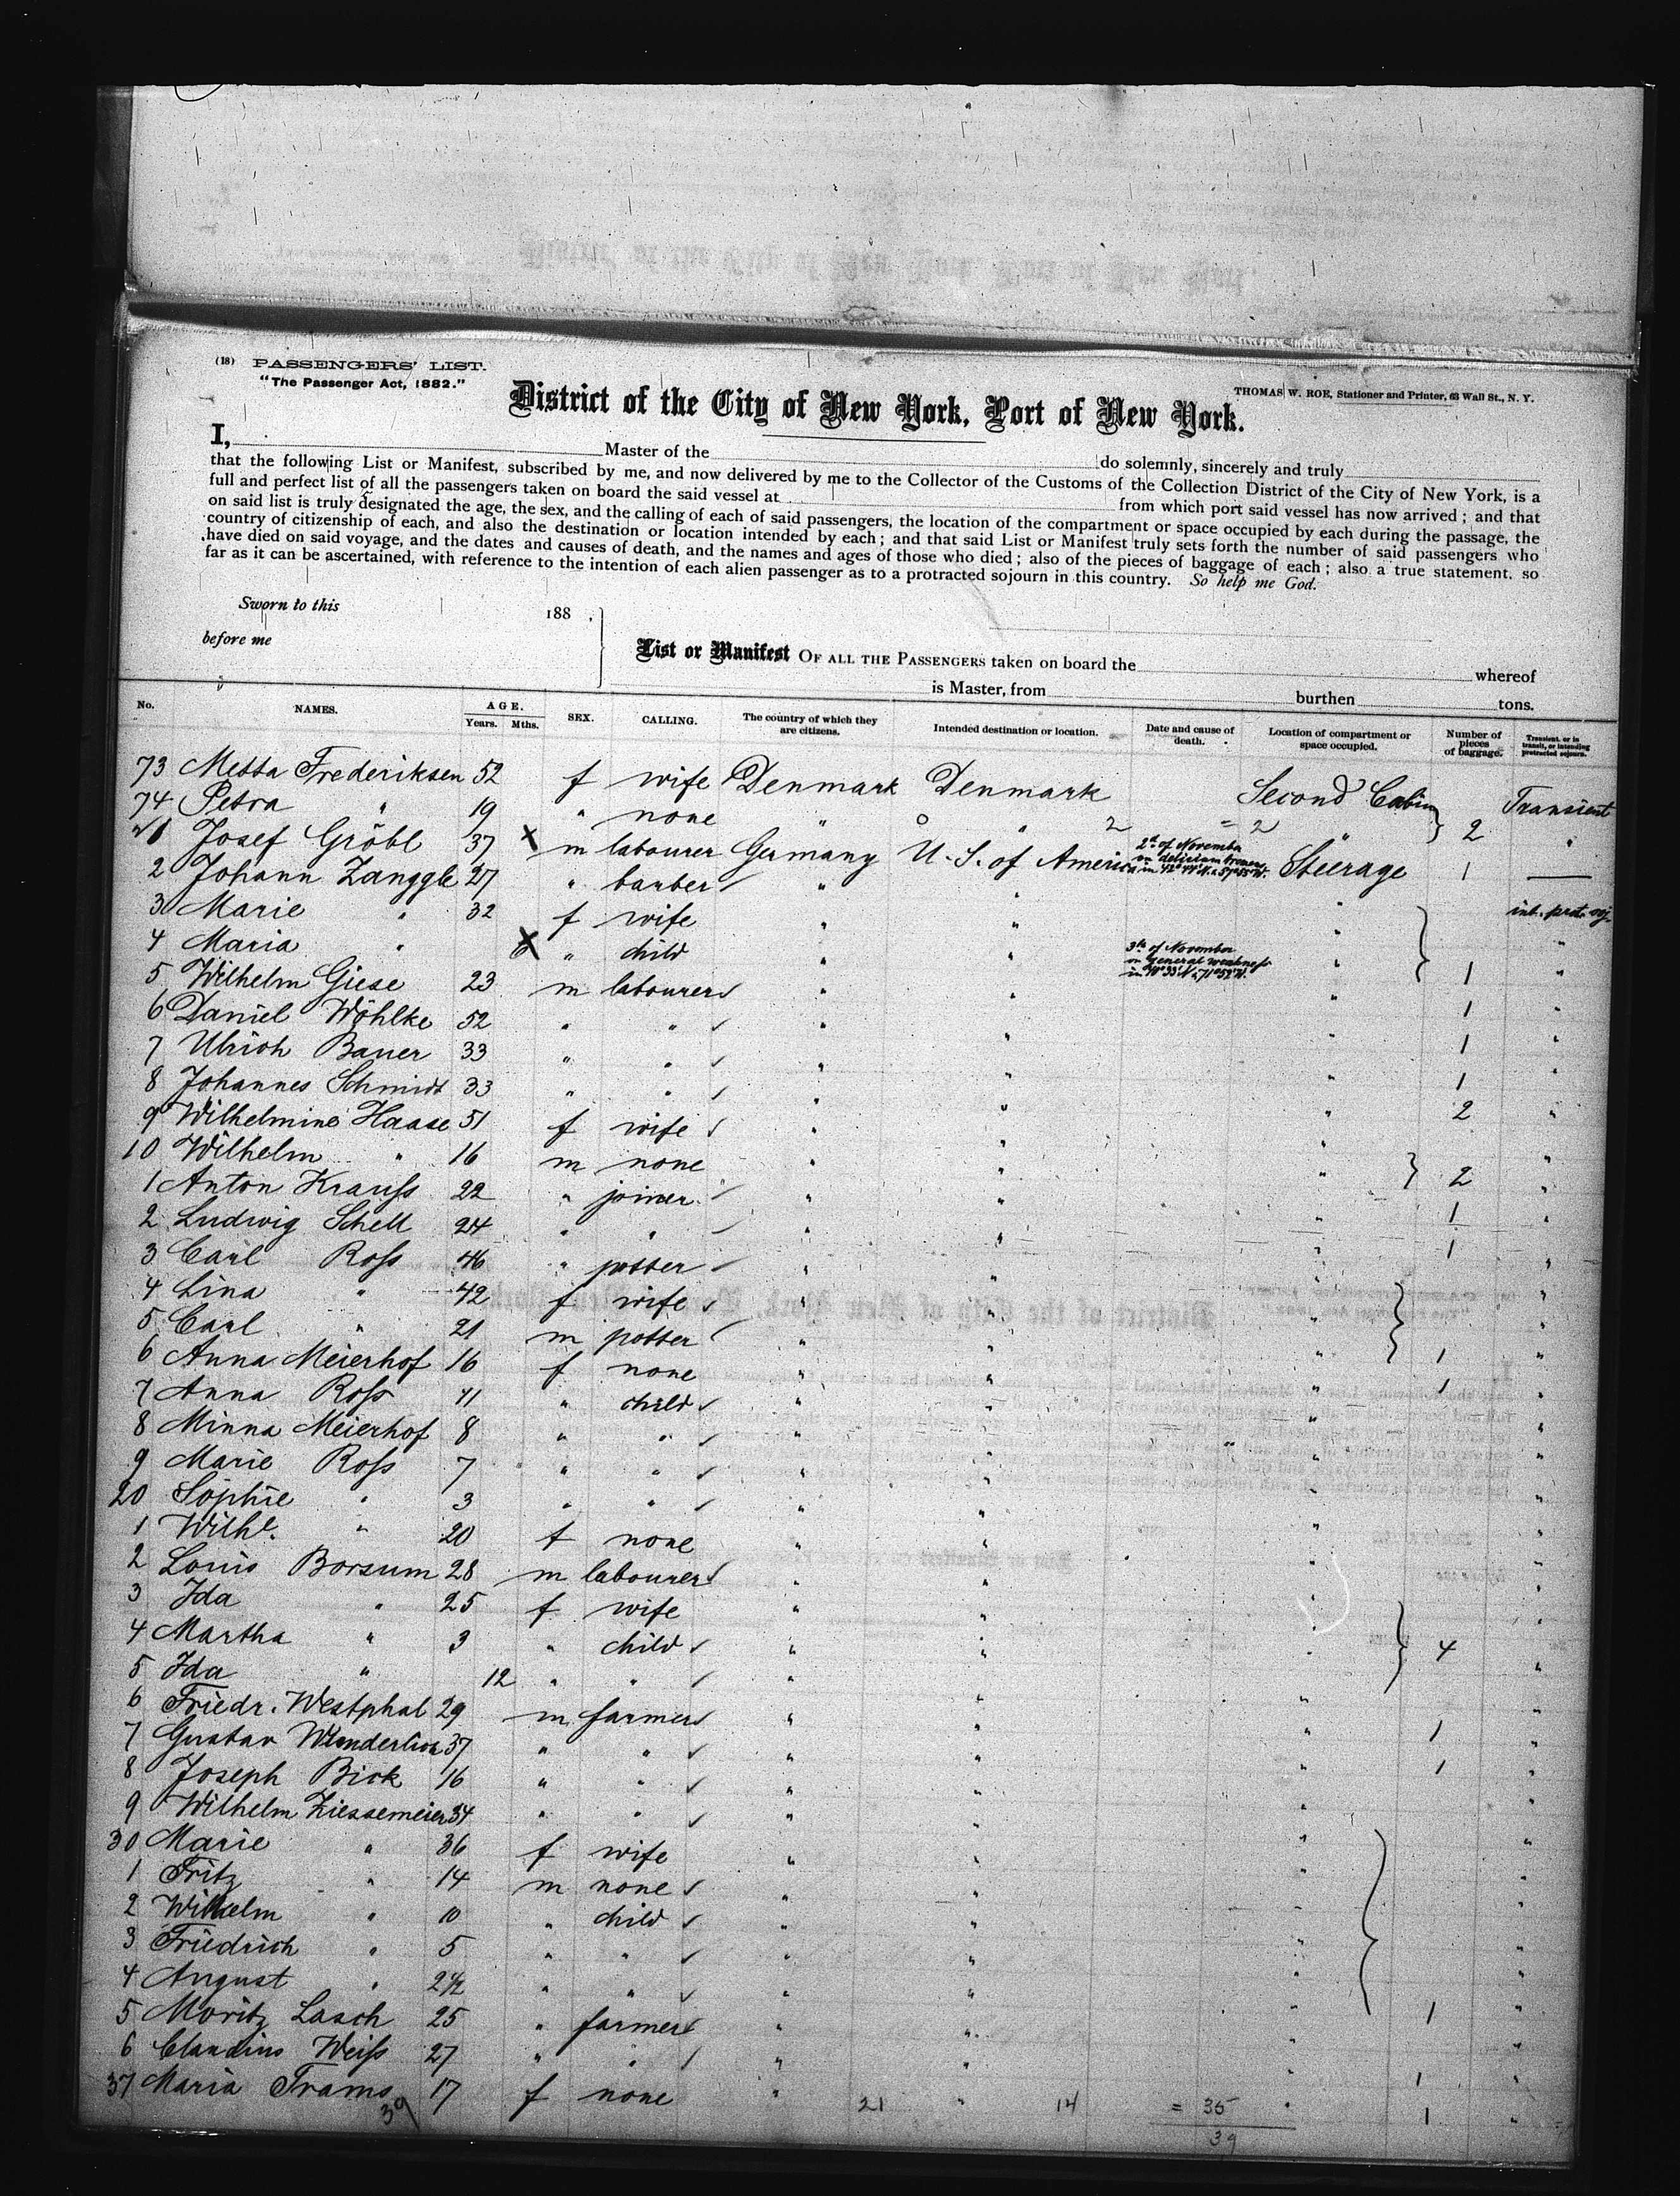 (18) PASSENGERS' LIST.
"The Passenger Act, 1882."
THOMAS W. ROE, Stationer and Printer, 63 Wall St., N. Y.
District of the City of New York, Port of New York.
I, Master of the do solemnly, sincerely and truly
that the following List or Manifest, subscribed by me, and now delivered by me to the Collector of the Customs of the Collection District of the City of New York, is a
full and perfect list of all the passengers taken on board the said vessel at from which port said vessel has now arrived; and that
on said list is truly designated the age, the sex, and the calling of each of said passengers, the location of the compartment or space occupied by each during the passage, the
country of citizenship of each, and also the destination or location intended by each; and that said List or Manifest truly sets forth the number of said passengers who
have died on said voyage, and the dates and causes of death, and the names and ages of those who died; also of the pieces of baggage of each; also a true statement, so
far as it can be ascertained, with reference to the intention of each alien passenger as to a protracted sojourn in this country. So help me God.
Sworn to this 188 ,
before me
List or Manifest OF ALL THE PASSENGERS taken on board the whereof
is Master, from burthen tons.
No. NAMES. AGE. Years. Mths. SEX. CALLING. The country of which they are citizens. Intended destination or location. Date and cause of death. Location of compartment or space occupied. Number of pieces of baggage. Transient, or in transit, or intending protracted sojourn.
73 Metta Frederiksen 52 f wife Denmark Denmark Second Cabin Transient
74 Petra " 19 " none " " 2 = 2 " 2 "
1 Josef Gröbl 37 X m labourer Germany U. S. of America 2d of November on delirium tremens in Steerage 1 —
2 Johann Zanggle 27 " barber " " " int. prot. soj.
3 Marie " 32 f wife " " " "
4 Maria " 6 X " child " " 3th of November on general weakness in " 1 "
5 Wilhelm Giese 23 m labourer " " " 1 "
6 Daniel Wöhlke 52 " " " " " 1 "
7 Ulrich Bauer 33 " " " " " 1 "
8 Johannes Schmidt 33 " " " " " 2 "
9 Wilhelmine Haase 51 f wife " " " "
10 Wilhelm " 16 m none " " " 2 "
1 Anton Krauss 22 " joiner " " " 1 "
2 Ludwig Schell 24 " " " " " 1 "
3 Carl Ross 46 " potter " " " "
4 Lina " 42 f wife " " " "
5 Carl " 21 m potter " " " 1 "
6 Anna Meierhof 16 f none " " " 1 "
7 Anna Ross 11 " child " " " "
8 Minna Meierhof 8 " " " " " "
9 Marie Ross 7 " " " " " "
20 Sophie " 3 " " " " " "
1 Wilhe. " 20 f none " " " "
2 Louis Borsum 28 m labourer " " " "
3 Ida " 25 f wife " " " "
4 Martha " 3 " child " " " 4 "
5 Ida " 12 " " " " " "
6 Friedr. Westphal 29 m farmer " " " 1 "
7 Gustav 37 " " " " " 1 "
8 Joseph Bick 16 " " " " " "
9 Wilhelm Ziessemeier 34 " " " " " "
30 Marie " 36 f wife " " " "
1 Fritz " 14 m none " " " "
2 Wilhelm " 10 " child " " " "
3 Friedrich " 5 " " " " " "
4 August " 2½ " " " " " "
5 Moritz Lasch 25 " farmer " " " 1 "
6 Claudius Weiss 27 " " " " " 1 "
37 Maria Trams 17 f none " " " 1 "
39 21 14 = 35
39